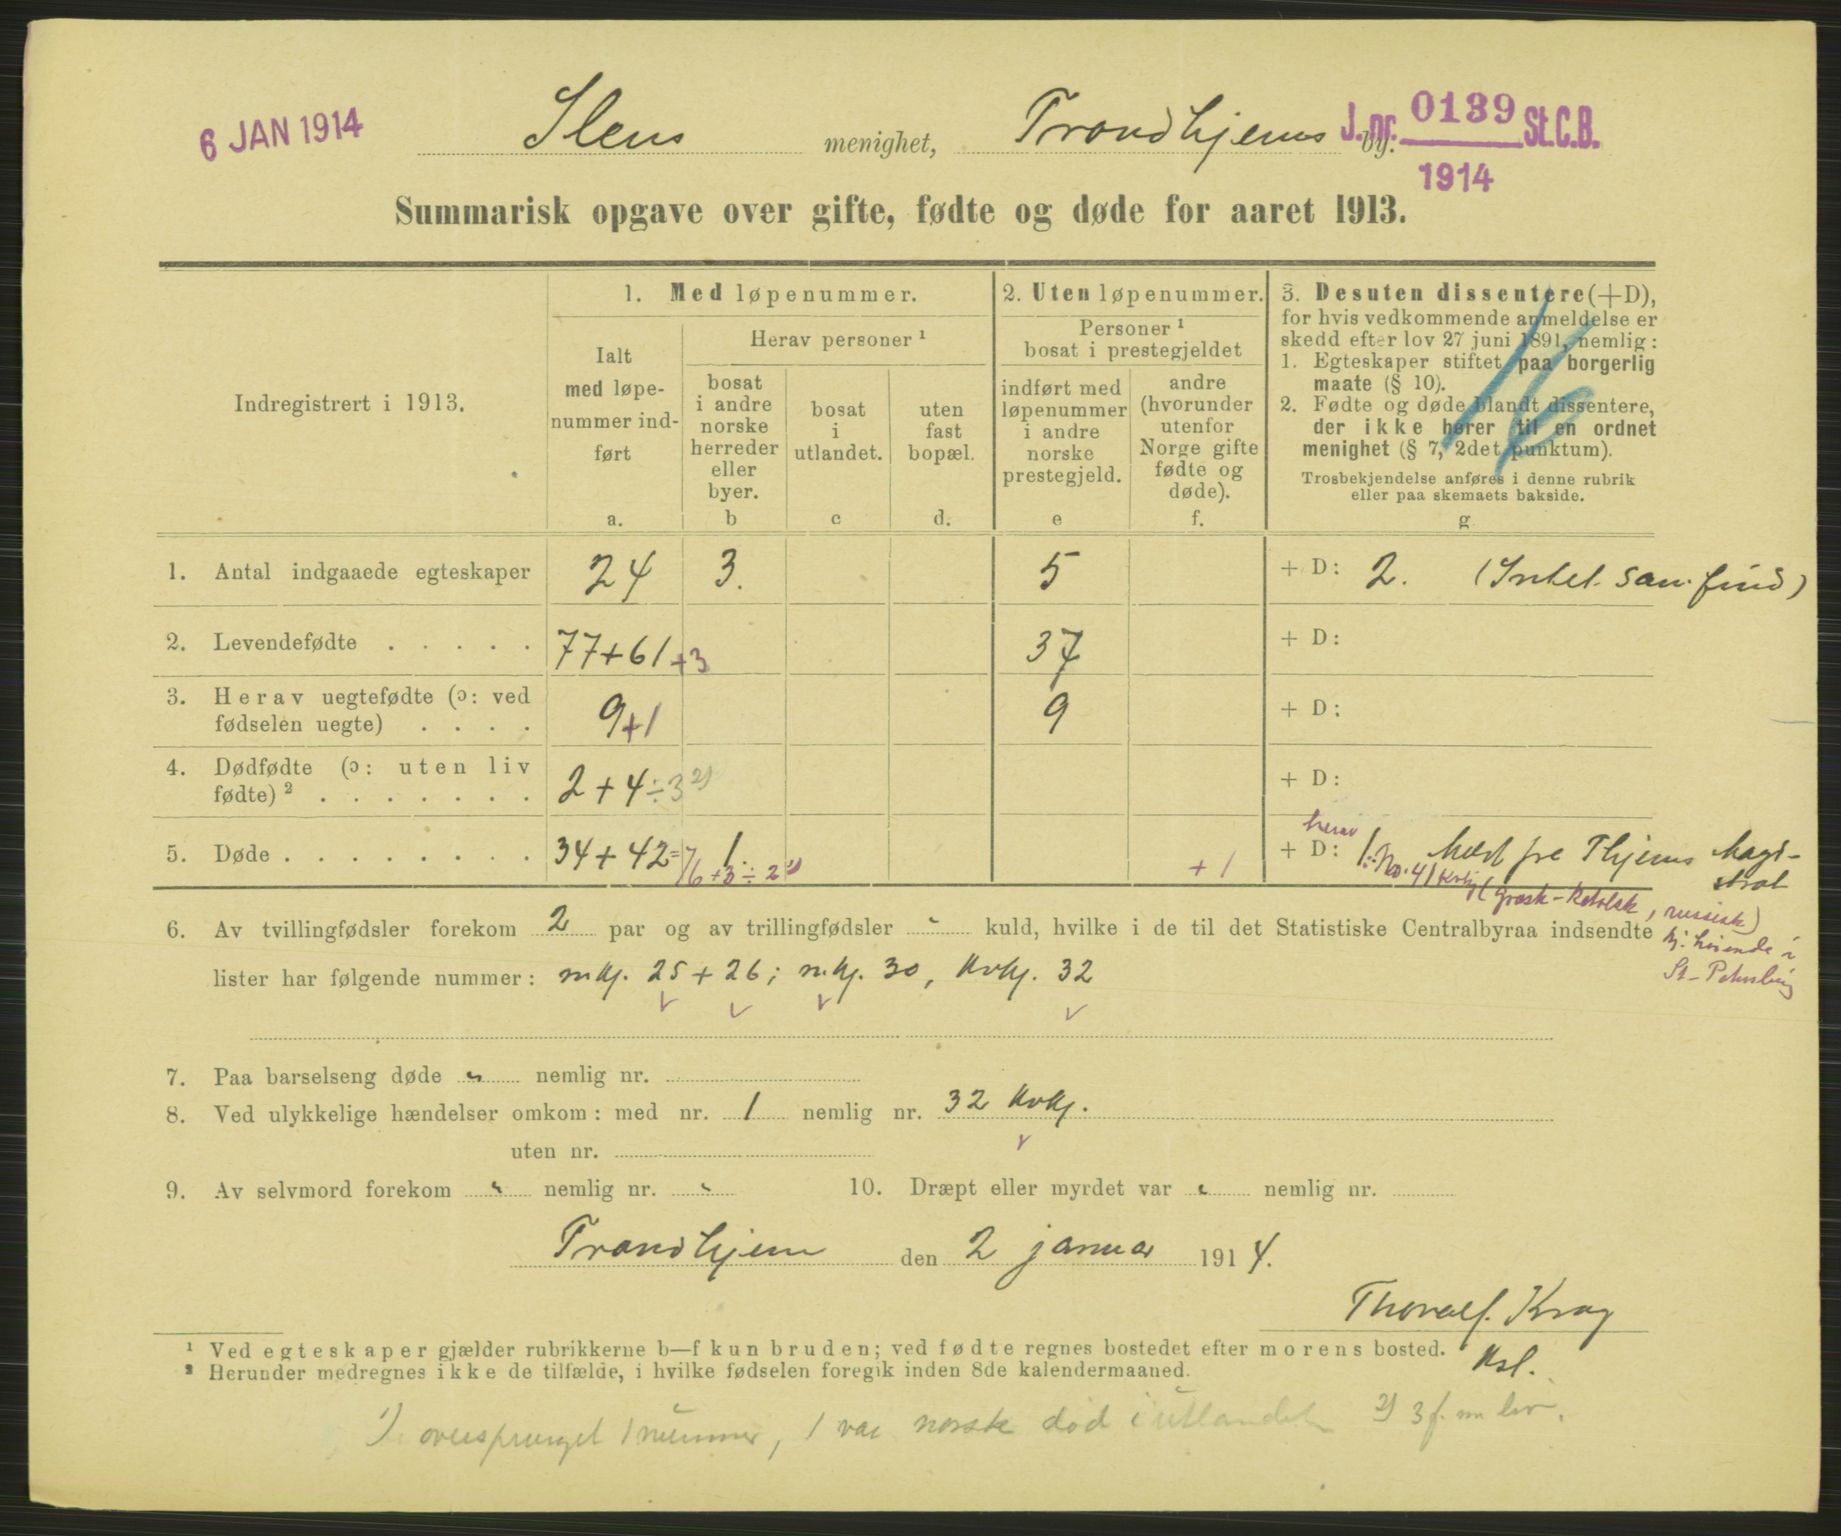 6 JAN 1914
Ilens menighet, Trondhjems by.
J. nr. 0139 St.C.B.
1914
Summarisk opgave over gifte, fødte og døde for aaret 1913.
Indregistrert i 1913.
1. Med løpenummer.
Ialt
med løpe-
nummer ind-
ført
a.
Herav personer ¹
bosat
i andre
norske
herreder
eller
byer.
b
bosat
i
utlandet.
c
uten
fast
bopæl.
d.
2. Uten løpenummer.
Personer ¹
bosat i prestegjeldet
indført med
løpenummer
i andre
norske
prestegjeld.
e
andre
(hvorunder
utenfor
Norge gifte
fødte og
døde).
f.
3. Desuten dissentere (+D),
for hvis vedkommende anmeldelse er
skedd efter lov 27 juni 1891, nemlig:
1. Egteskaper stiftet paa borgerlig
maate (§ 10).
2. Fødte og døde blandt dissentere,
der ikke hører til en ordnet
menighet (§ 7, 2det punktum).
Trosbekjendelse anføres i denne rubrik
eller paa skemaets bakside.
g
16
1. Antal indgaaede egteskaper 24 3. 5 + D: 2.
2. Levendefødte . . . . . 77+61+3 37 + D:
3. Herav uegtefødte (ɔ: ved
fødselen uegte) . . . . 9+1 9 + D:
4. Dødfødte (ɔ: uten liv
fødte) ² . . . . . . . 2 + 4 ÷ 3 2) + D:
5. Døde . . . . . . . . 34 + 42 = 76 +3 ÷ 2 1) 1 + 1 + D: herav 1
Meld fra Thjems Magi-
strat
(græsk-katolsk, russisk)
hj. hørende i
St-Petersburg
6. Av tvillingfødsler forekom 2 par og av trillingfødsler - kuld, hvilke i de til det Statistiske Centralbyraa indsendte
lister har følgende nummer: mkj. 25 + 26; mkj. 30, kvkj. 32
7. Paa barselseng døde " nemlig nr.
8. Ved ulykkelige hændelser omkom: med nr. 1 nemlig nr. 32 kvkj.
uten nr.
9. Av selvmord forekom " nemlig nr. "
10. Dræpt eller myrdet var " nemlig nr.
Trondhjem den 2 januar 1914.
Thoralf Krag
ksl.
¹ Ved egteskaper gjælder rubrikkerne b—f kun bruden; ved fødte regnes bostedet efter morens bosted.
² Herunder medregnes ikke de tilfælde, i hvilke fødselen foregik inden 8de kalendermaaned.
1) oversprunget 1 nummer, 1 var norsk død i utlandet 2) 3 f. m liv.